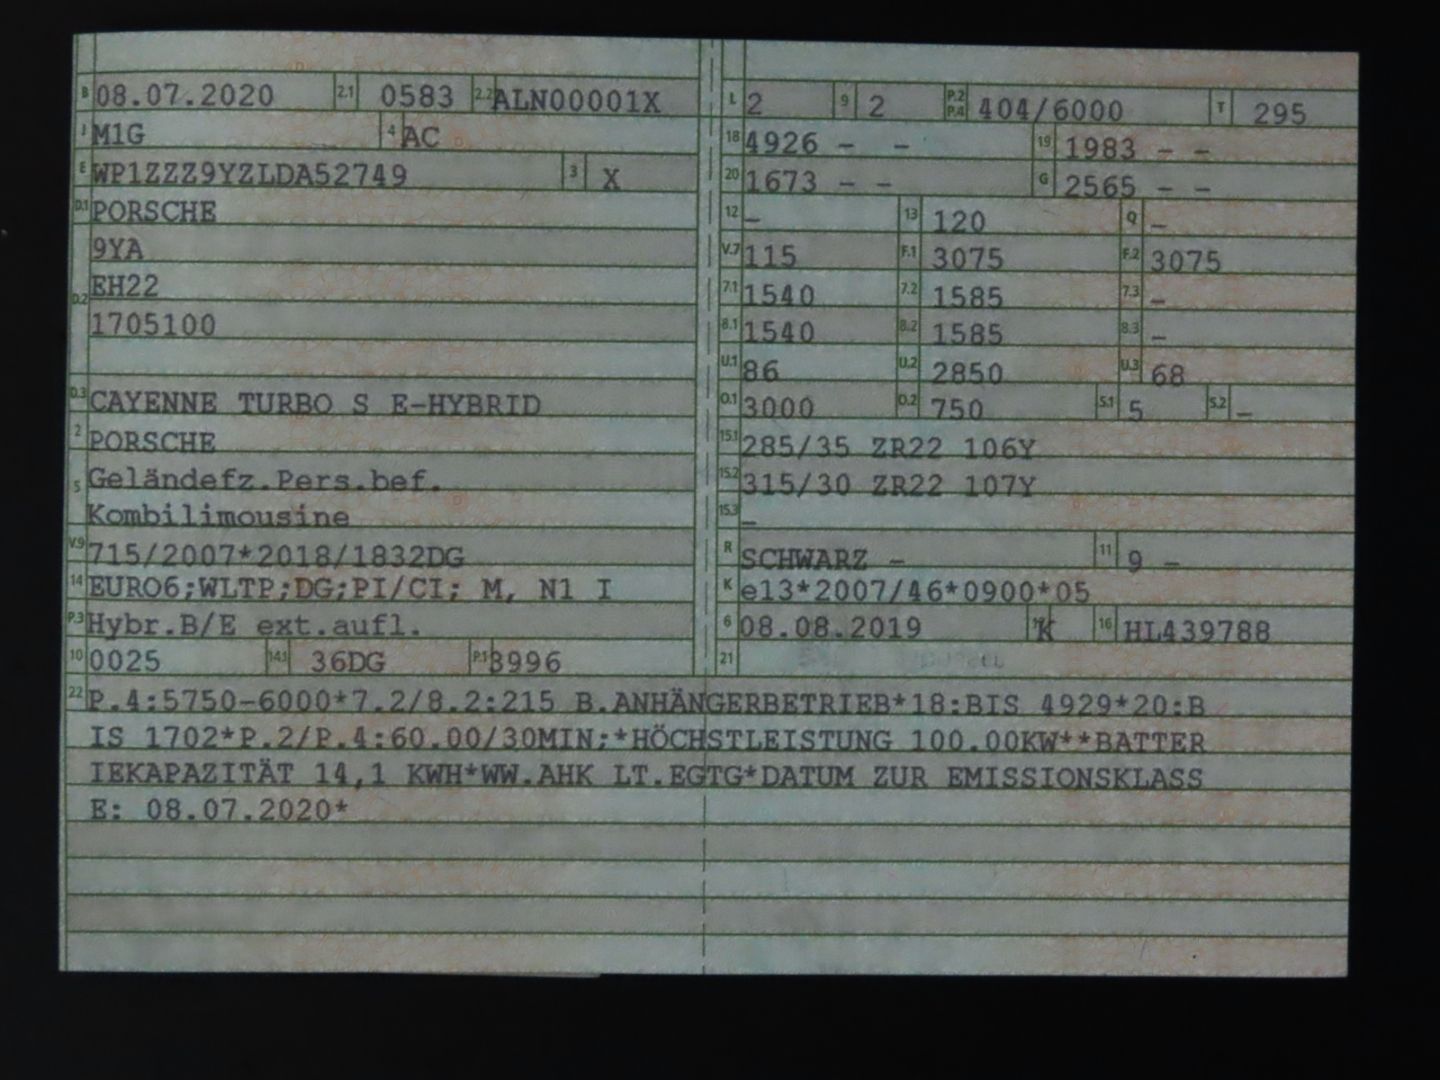 B 08.07.2020 2.1 0583 2.2 ALN00001X
J M1G 4 AC
E WP1ZZZ9YZLDA52749 3 X
D.1 PORSCHE
9YA
D.2 EH22
1705100
D.3 CAYENNE TURBO S E-HYBRID
2 PORSCHE
5 Geländefz.Pers.bef.
Kombilimousine
V.9 715/2007*2018/1832DG
14 EURO6;WLTP;DG;PI/CI; M, N1 I
P.3 Hybr.B/E ext.aufl.
10 0025 14.1 36DG P.1 3996
L 2 9 2 P.2 P.4 404/6000 T 295
18 4926 – – 19 1983 – –
20 1673 – – G 2565 – –
12 – 13 120 Q –
V.7 115 F.1 3075 F.2 3075
7.1 1540 7.2 1585 7.3 –
8.1 1540 8.2 1585 8.3 –
U.1 86 U.2 2850 U.3 68
O.1 3000 O.2 750 S.1 5 S.2 –
15.1 285/35 ZR22 106Y
15.2 315/30 ZR22 107Y
15.3 –
R SCHWARZ – 11 9 –
K e13*2007/46*0900*05
6 08.08.2019 17 K 16 HL439788
21
22 P.4:5750-6000*7.2/8.2:215 B.ANHÄNGERBETRIEB*18:BIS 4929*20:B
IS 1702*P.2/P.4:60.00/30MIN;*HÖCHSTLEISTUNG 100.00KW**BATTER
IEKAPAZITÄT 14,1 KWH*WW.AHK LT.EGTG*DATUM ZUR EMISSIONSKLASS
E: 08.07.2020*